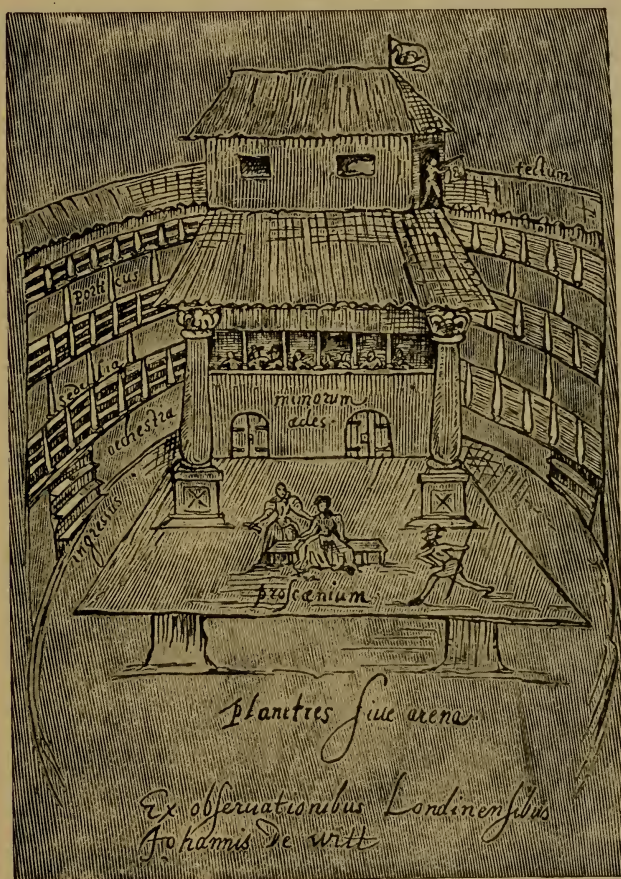 tectum
porticus
sedilia
orchestra
mimorum
ædes.
ingressus
proscænium
planities ſiue arena.
Ex obſeruationibus Londinenſibus
Johannis De witt